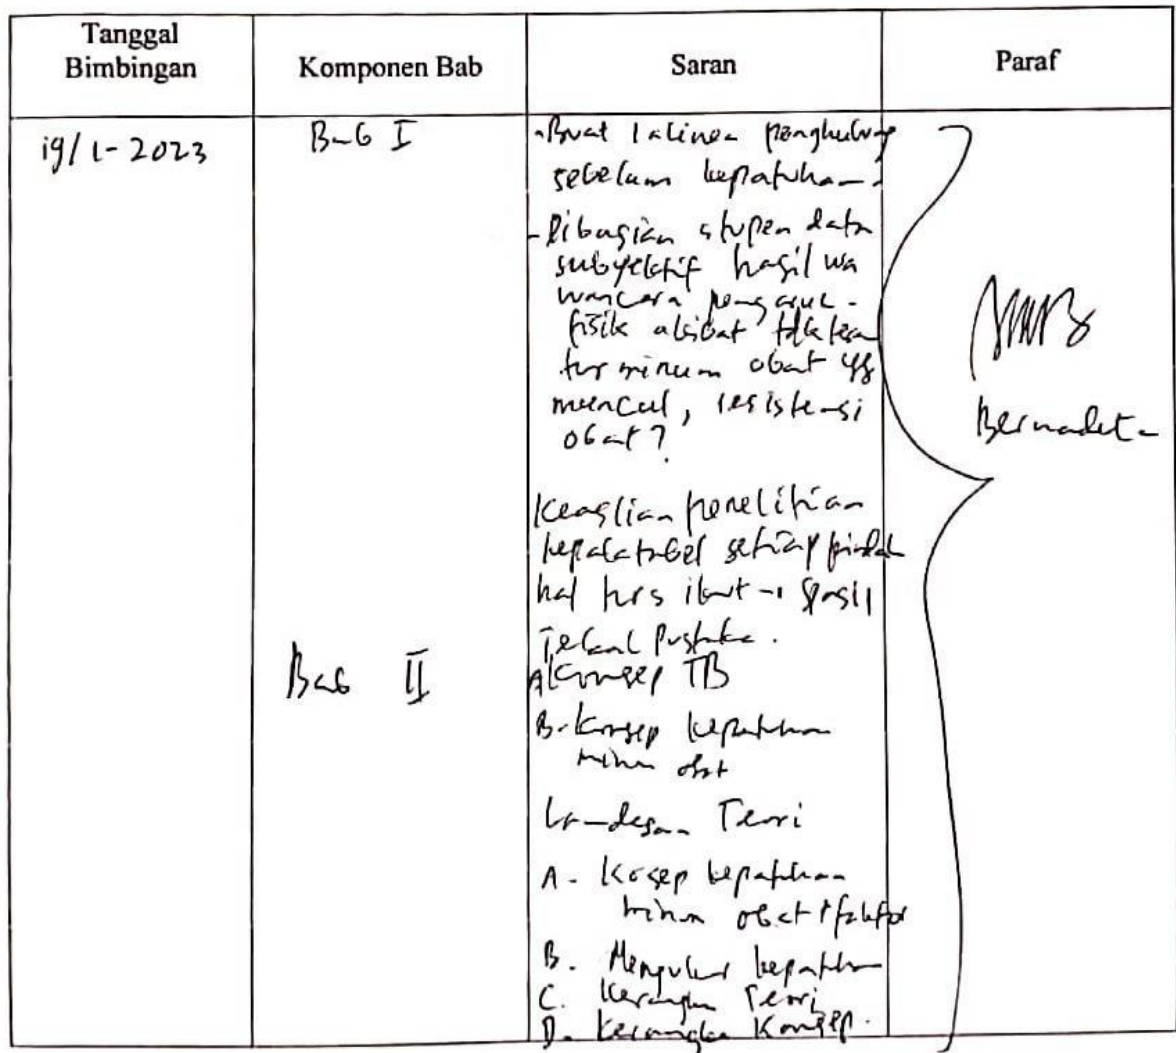 Tanggal
Bimbingan
Komponen Bab
Saran
Paraf
19/1-2023
Bab I
- Buat 1 alinea penghubung
sebelum kepatuhan.
- Dibagian stupen data
subyektif hasil wa
wancara pengaruh
fisik akibat tdk tera
tur minum obat yg
muncul, resistensi
obat?
Keaslian penelitian
kepala tabel setiap pindah
hal hrs ikut spasi 1
Bab II
Telaah Pustaka.
A Konsep TB
B. Konsep kepatuhan
minum obat
Landasan Teori
A. Kosep kepatuhan
minum obat + faktor
B. Mengukur kepatuhan
C. Kerangka Teori
D. Kerangka Konsep.
Bernadeta